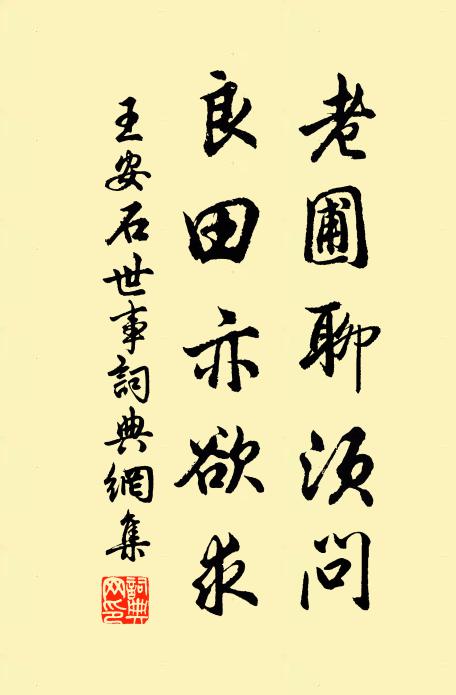 老圃聊須問
良田亦欲求
王安石世事詞典網集
詞典網印